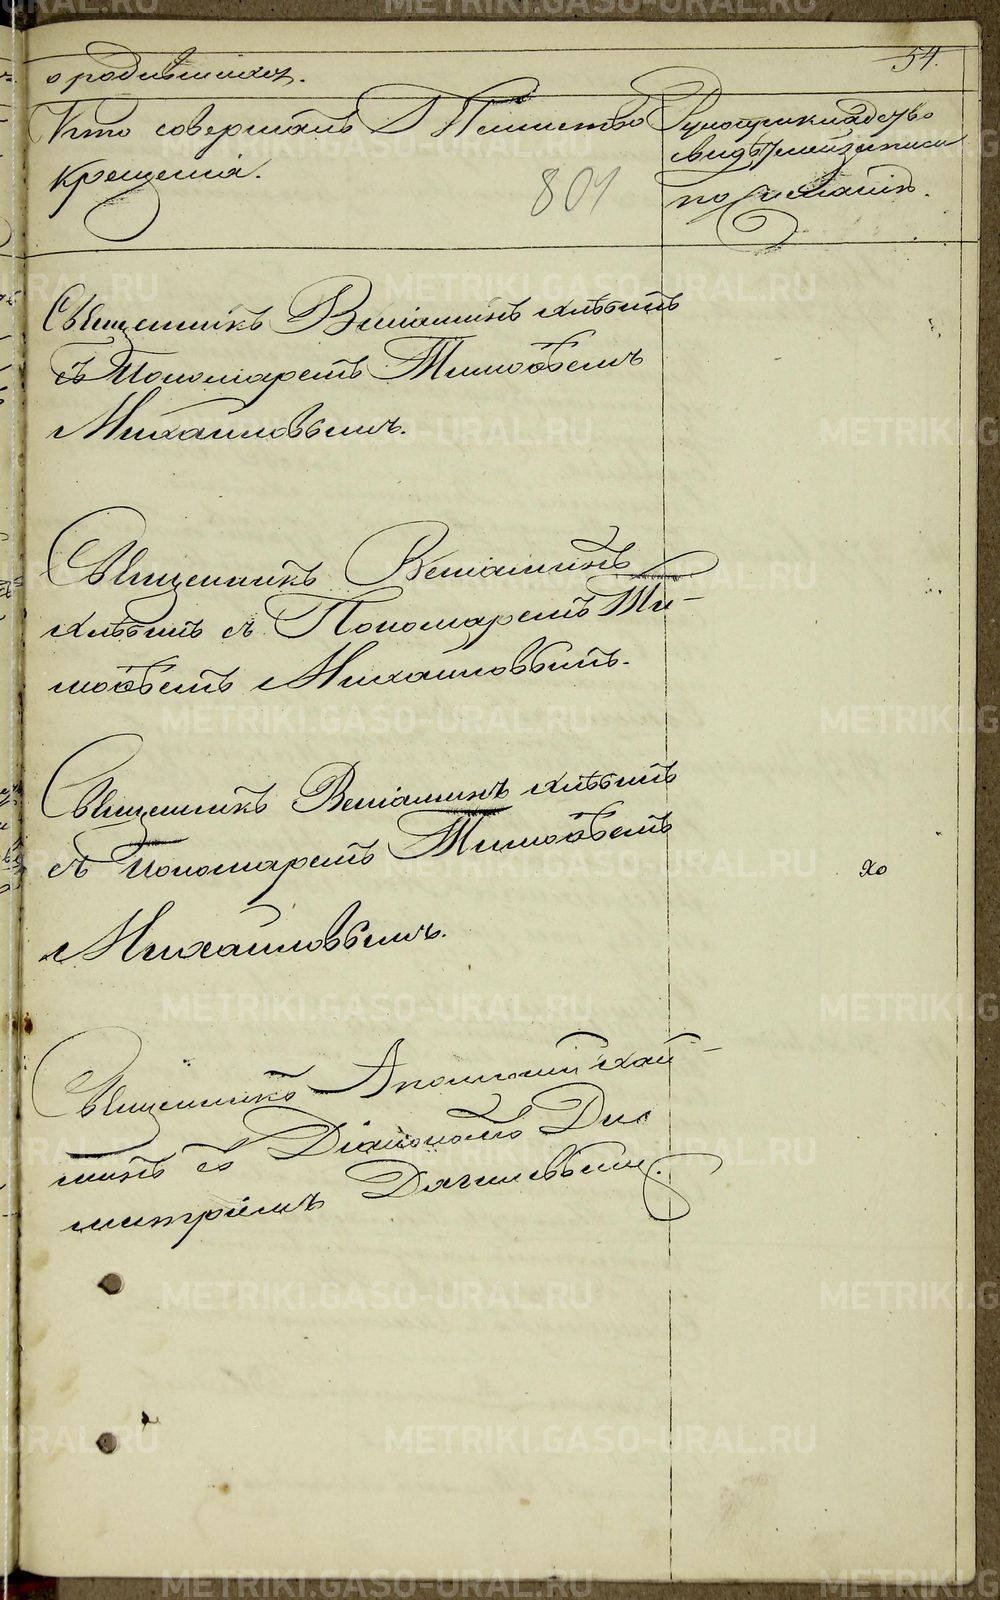 54.
о родившихся.
Кто совершалъ Таинство
крещенія.
801
Рукоприкладство
свидѣтелей записи
по желанію.
Священникъ Веніаминъ Хлѣбинъ
съ Пономаремъ Тимоѳеемъ
Михайловымъ.
Священникъ Веніаминъ
Хлѣбинъ съ Пономаремъ Ти-
моѳеемъ Михайловымъ.
Священникъ Веніаминъ Хлѣбинъ
съ Пономаремъ Тимоѳеемъ
Михайловымъ.
хо
Священникъ
съ Діакономъ Ди
митріемъ
METRIKI.GASO-URAL.RU